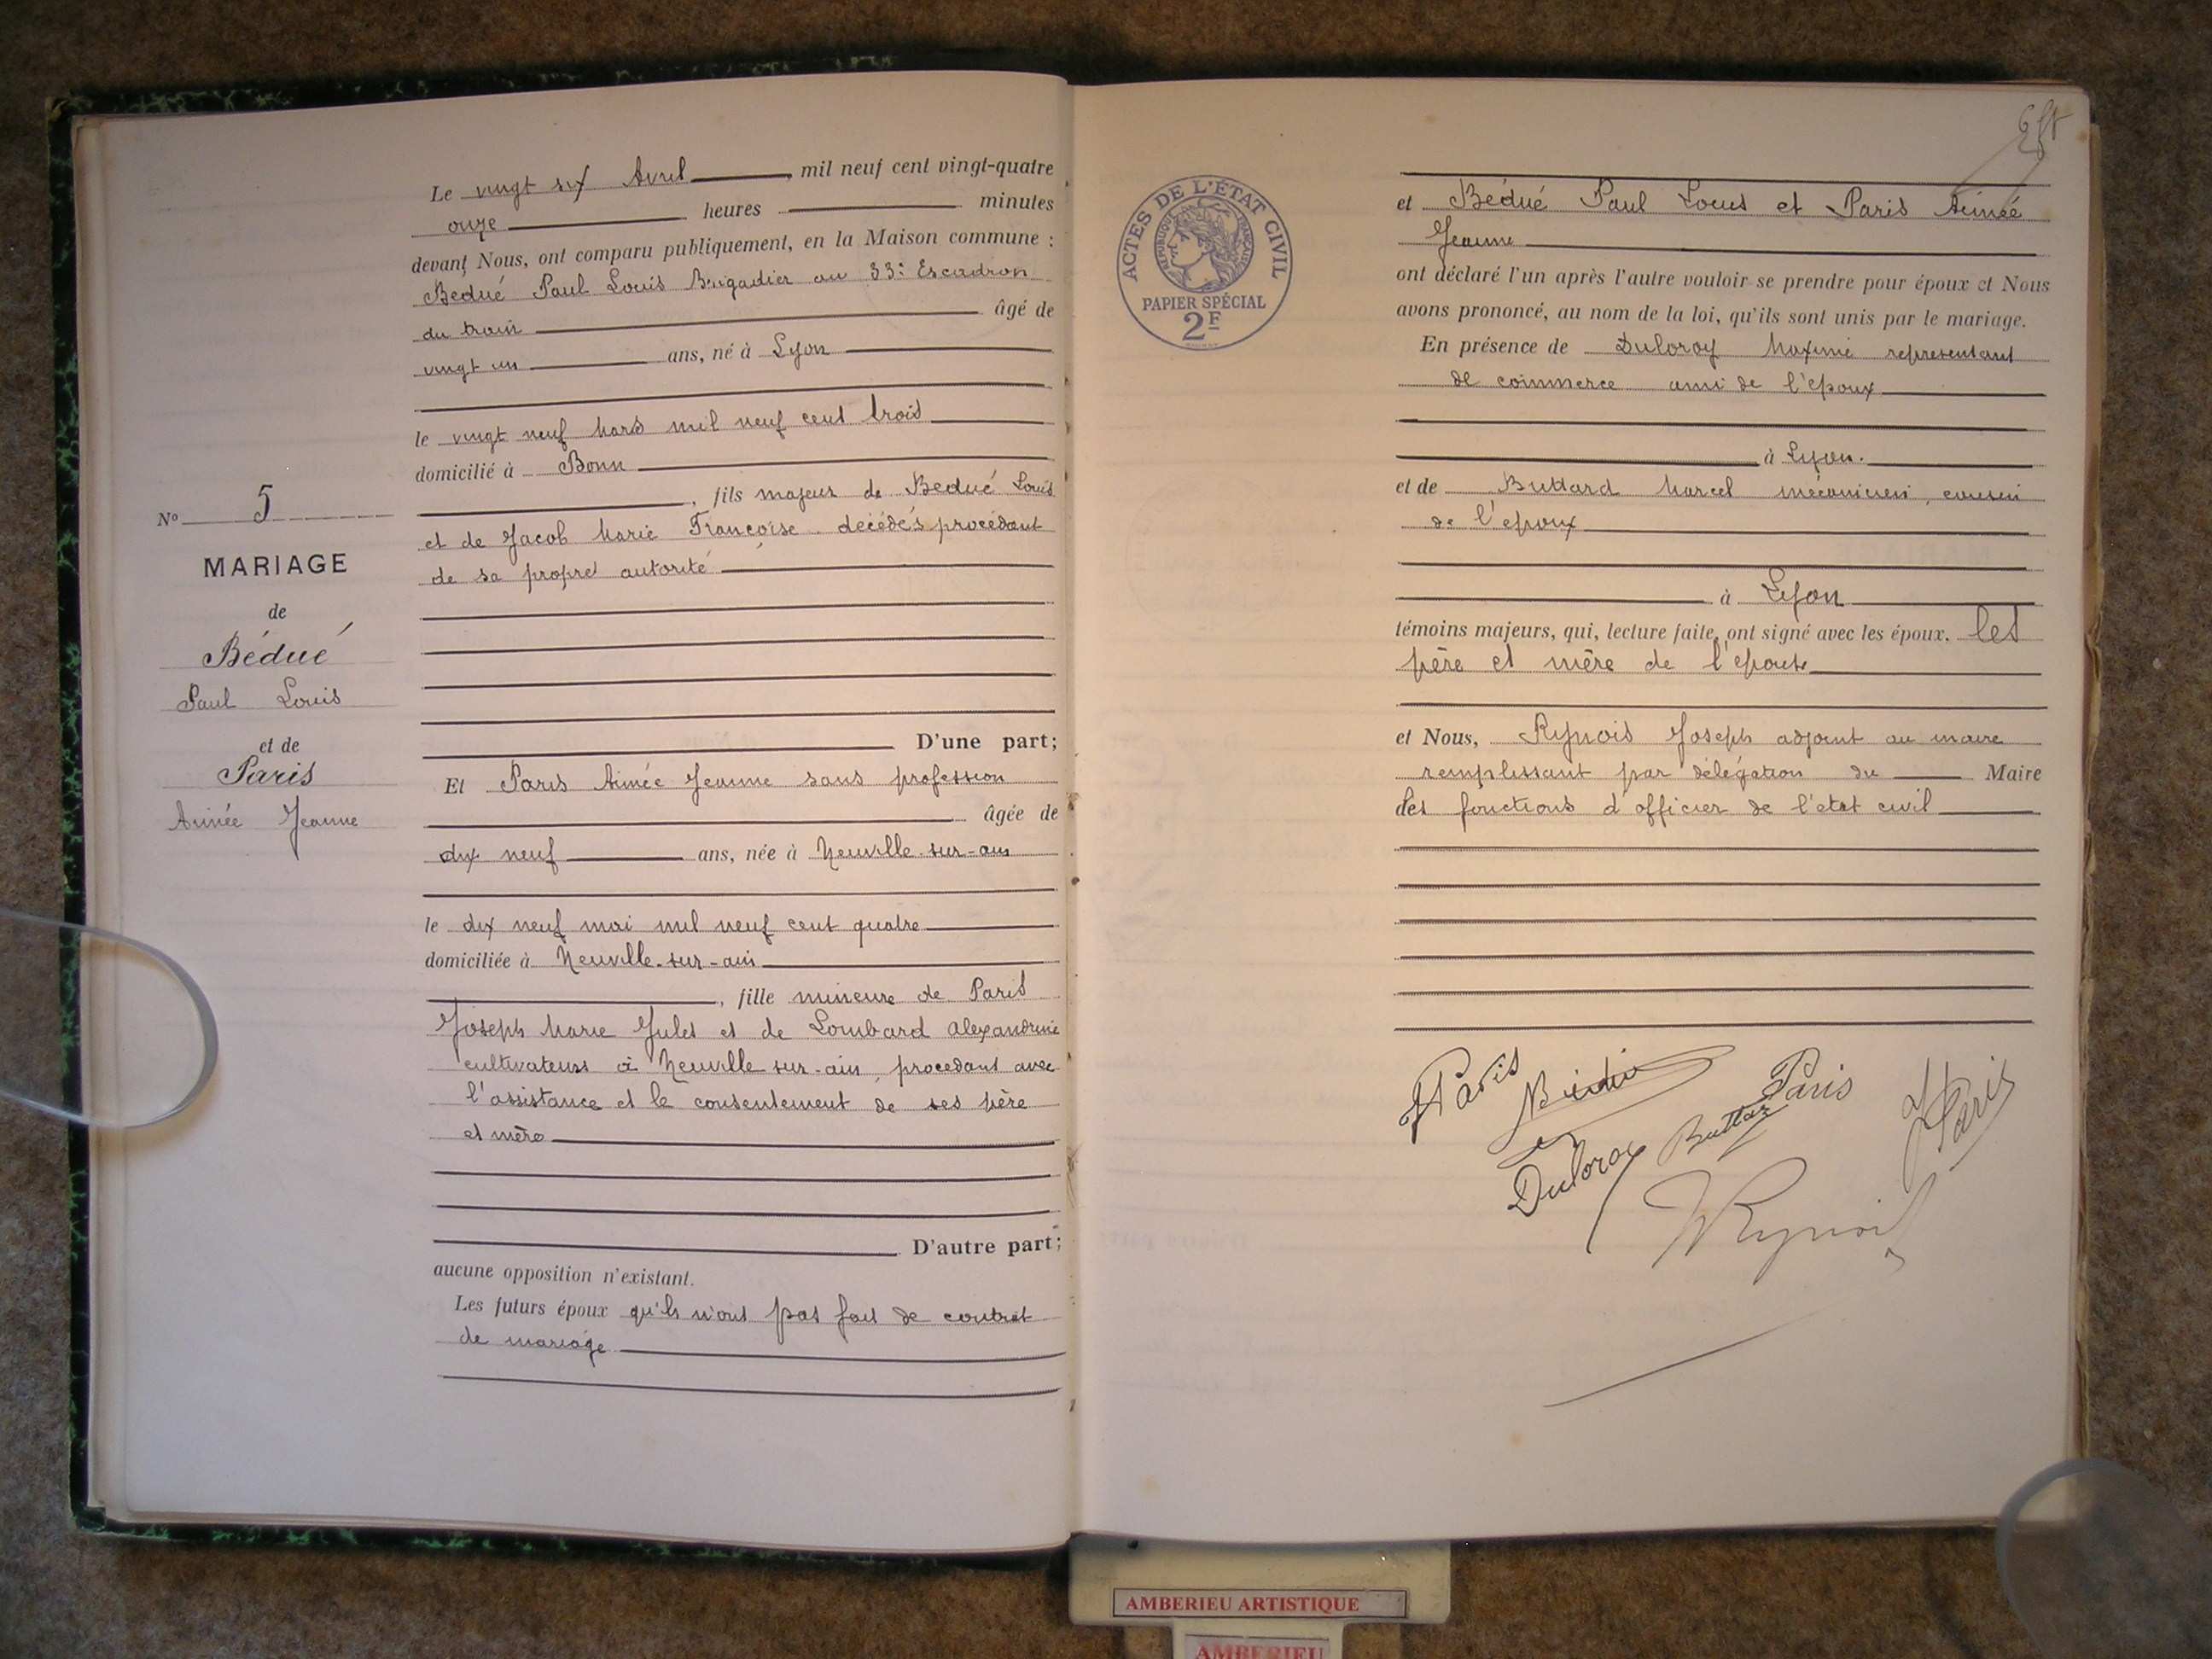 Le vingt six Avril, mil neuf cent vingt-quatre
onze heures minutes
devant Nous, ont comparu publiquement, en la Maison commune :
Bédué Paul Louis Brigadier au 33e Escadron
du train âgé de
vingt un ans, né à Lyon
le vingt neuf Mars mil neuf cent trois
domicilié à Bonn
, fils majeur de Bedué Louis
et de Jacob Marie Françoise décédés procédant
de sa propre autorité
D'une part;
Et Paris Aimée Jeanne sans profession
âgée de
dix neuf ans, née à Neuville-sur-ain
le dix neuf mai mil neuf cent quatre
domiciliée à Neuville-sur-ain
, fille mineure de Paris
Joseph Marie Jules et de Lombard alexandrine
cultivateurs à Neuville sur-ain, procedant avec
l'assistance et le consentement de ses père
et mère
D'autre part;
aucune opposition n'existant.
Les futurs époux qu'ils n'ont pas fait de contrat
de mariage
No 5
MARIAGE
de
Bédué
Paul Louis
et de
Paris
Aimée Jeanne
ACTES DE L'ÉTAT CIVIL
RÉPUBLIQUE FRANÇAISE
PAPIER SPÉCIAL
2F
et Bédué Paul Louis et Paris Aimée
Jeanne
ont déclaré l'un après l'autre vouloir se prendre pour époux et Nous
avons prononcé, au nom de la loi, qu'ils sont unis par le mariage.
En présence de Duloroy Maxime representant
de commerce ami de l'epoux
à Lyon.
et de Buttard Marcel mécanicien, cousin
de l'epoux
à Lyon
témoins majeurs, qui, lecture faite, ont signé avec les époux. les
père et mère de l'epouse
et Nous, Rynois Joseph adjoint au maire
remplissant par délégation du Maire
des fonctions d'officier de l'etat civil
Paris
Paris
Buttar
Paris
Duloroy
Rynois
AMBERIEU ARTISTIQUE
AMBERIEU